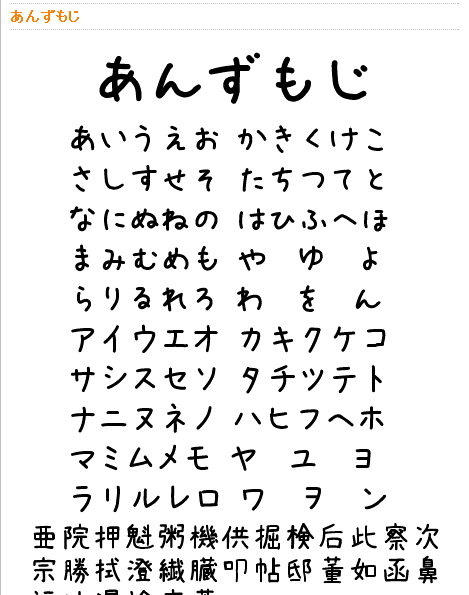 あんずもじ
あんずもじ
あいうえお かきくけこ
さしすせそ たちつてと
なにぬねの はひふへほ
まみむめも や ゆ よ
らりるれろ わ を ん
アイウエオ カキクケコ
サシスセソ タチツテト
ナニヌネノ ハヒフヘホ
マミムメモ ヤ ユ ヨ
ラリルレロ ワ ヲ ン
亜院押魁粥機供掘検后此察次
宗勝拭澄繊臓叩帖邸董如函鼻